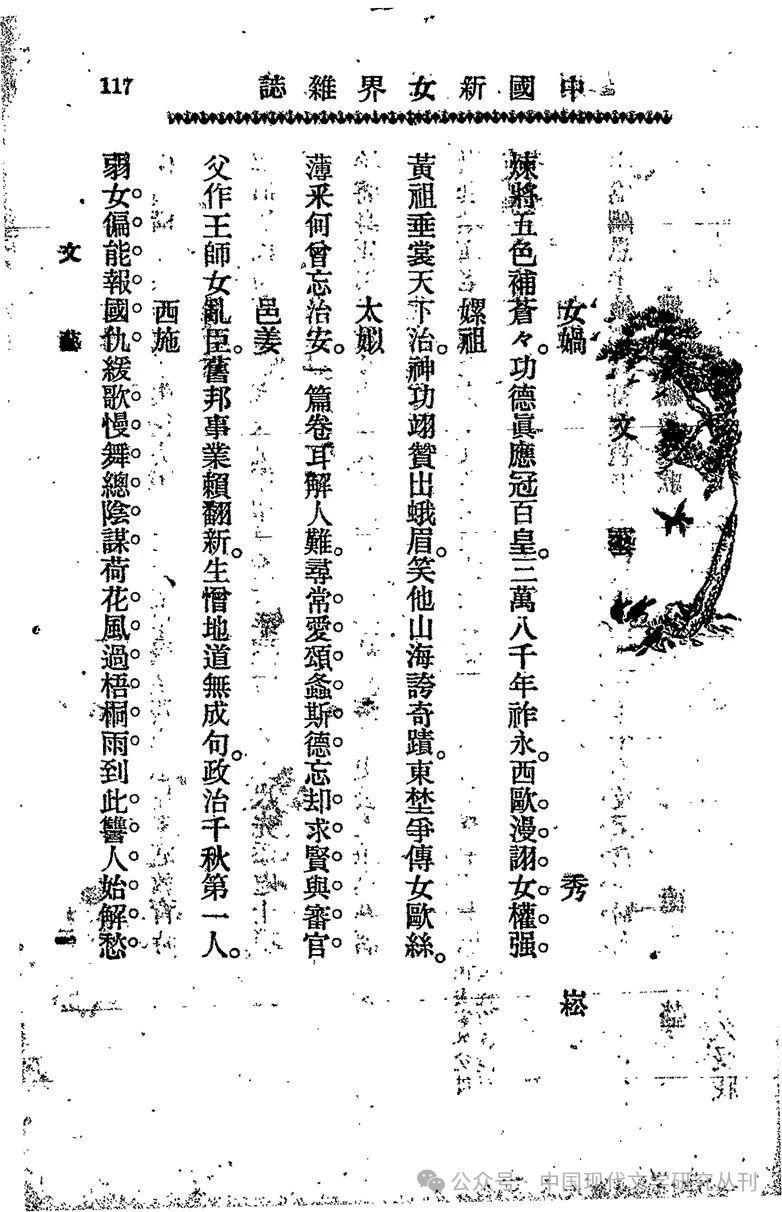 中國新女界雜誌
117
文藝
女媧
秀崧
煉將五色補蒼々。功德眞應冠百皇。三萬八千年祚永。西歐漫詡女權强。
嫘祖
黃祖垂裳天下治。神功翊贊出蛾眉。笑他山海誇奇蹟。東埜爭傳女歐絲。
太姒
薄采何曾忘治安。一篇卷耳解人難。尋常愛頌螽斯德忘却求賢與審官
邑姜
父作王師女亂臣。舊邦事業賴翻新。生憎地道無成句。政治千秋第一人。
西施
弱女偏能報國仇緩歌慢舞總陰謀荷花風過梧桐雨到此讐人始解愁
文藝
公众号·中国现代文学研究丛刊